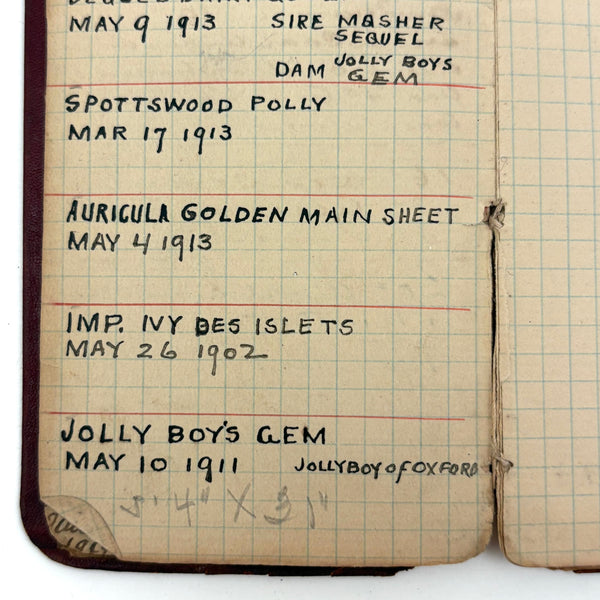 MAY 9 1913 SIRE MASHER
SEQUEL
DAM JOLLY BOYS
GEM
SPOTTSWOOD POLLY
MAR 17 1913
AURICULA GOLDEN MAIN SHEET
MAY 4 1913
IMP. IVY DES ISLETS
MAY 26 1902
JOLLY BOY'S GEM
MAY 10 1911 JOLLYBOY of OXFORD